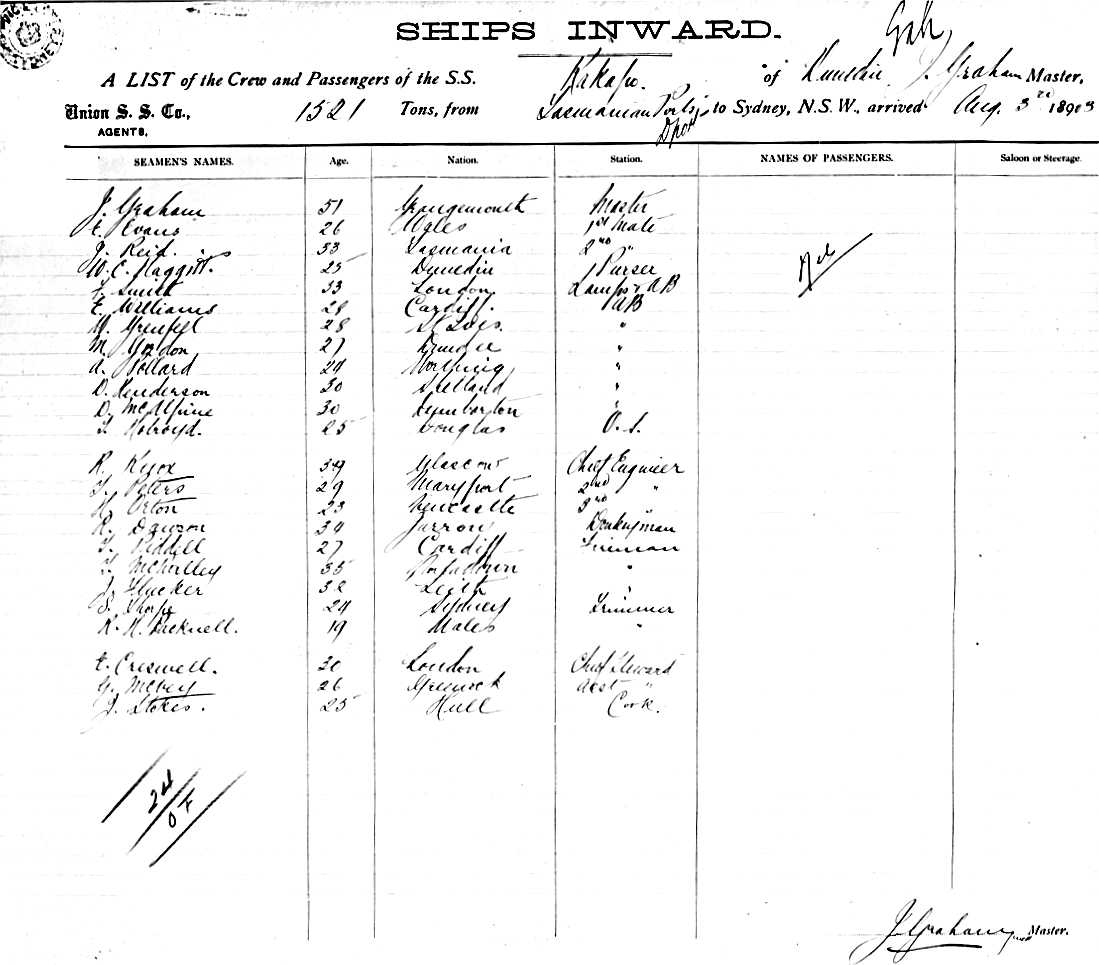 SHIPS INWARD.
A LIST of the Crew and Passengers of the S.S. Kakapo. of Dunedin J. Graham Master,
Union S. S. Co., 1521 Tons, from Tasmanian Ports to Sydney, N.S.W., arrived Aug. 3rd 18903
AGENTS,
SEAMEN'S NAMES. Age. Nation. Station. NAMES OF PASSENGERS. Saloon or Steerage.
J. Graham 51 Grangemouth Master
E. Evans 26 Wales 1st Mate
J. Reid. 33 Tasmania 2nd "
W. C. Haggitt. 25 Dunedin Purser
Nil
Smith 33 London Lamps & AB
E. Williams 28 Cardiff. AB
Grenfell 28 St Ives. "
M. Gordon 27 Dundee "
A. Pollard 24 Worthing "
D. Henderson 30 Shetland "
D. McAlpine 30 Dumbarton "
Holroyd. 25 Douglas O.S.
R. Knox 39 Glascow Chief Engineer
Peters 29 Maryport 2nd "
Orton 23 Newcastle 3rd
R. Dawson 34 Jarrow Donkeyman
27 Cardiff Fireman
35 "
J. Flucker 32 Leith "
S. Sharpe 24 Sydney Trimmer
R. H. 19 Wales "
E. Creswell. 30 London Chief Steward
G. McVey 26 Greenock Asst "
J. Stokes. 25 Hull Cook.
24
0
J. Graham Master.